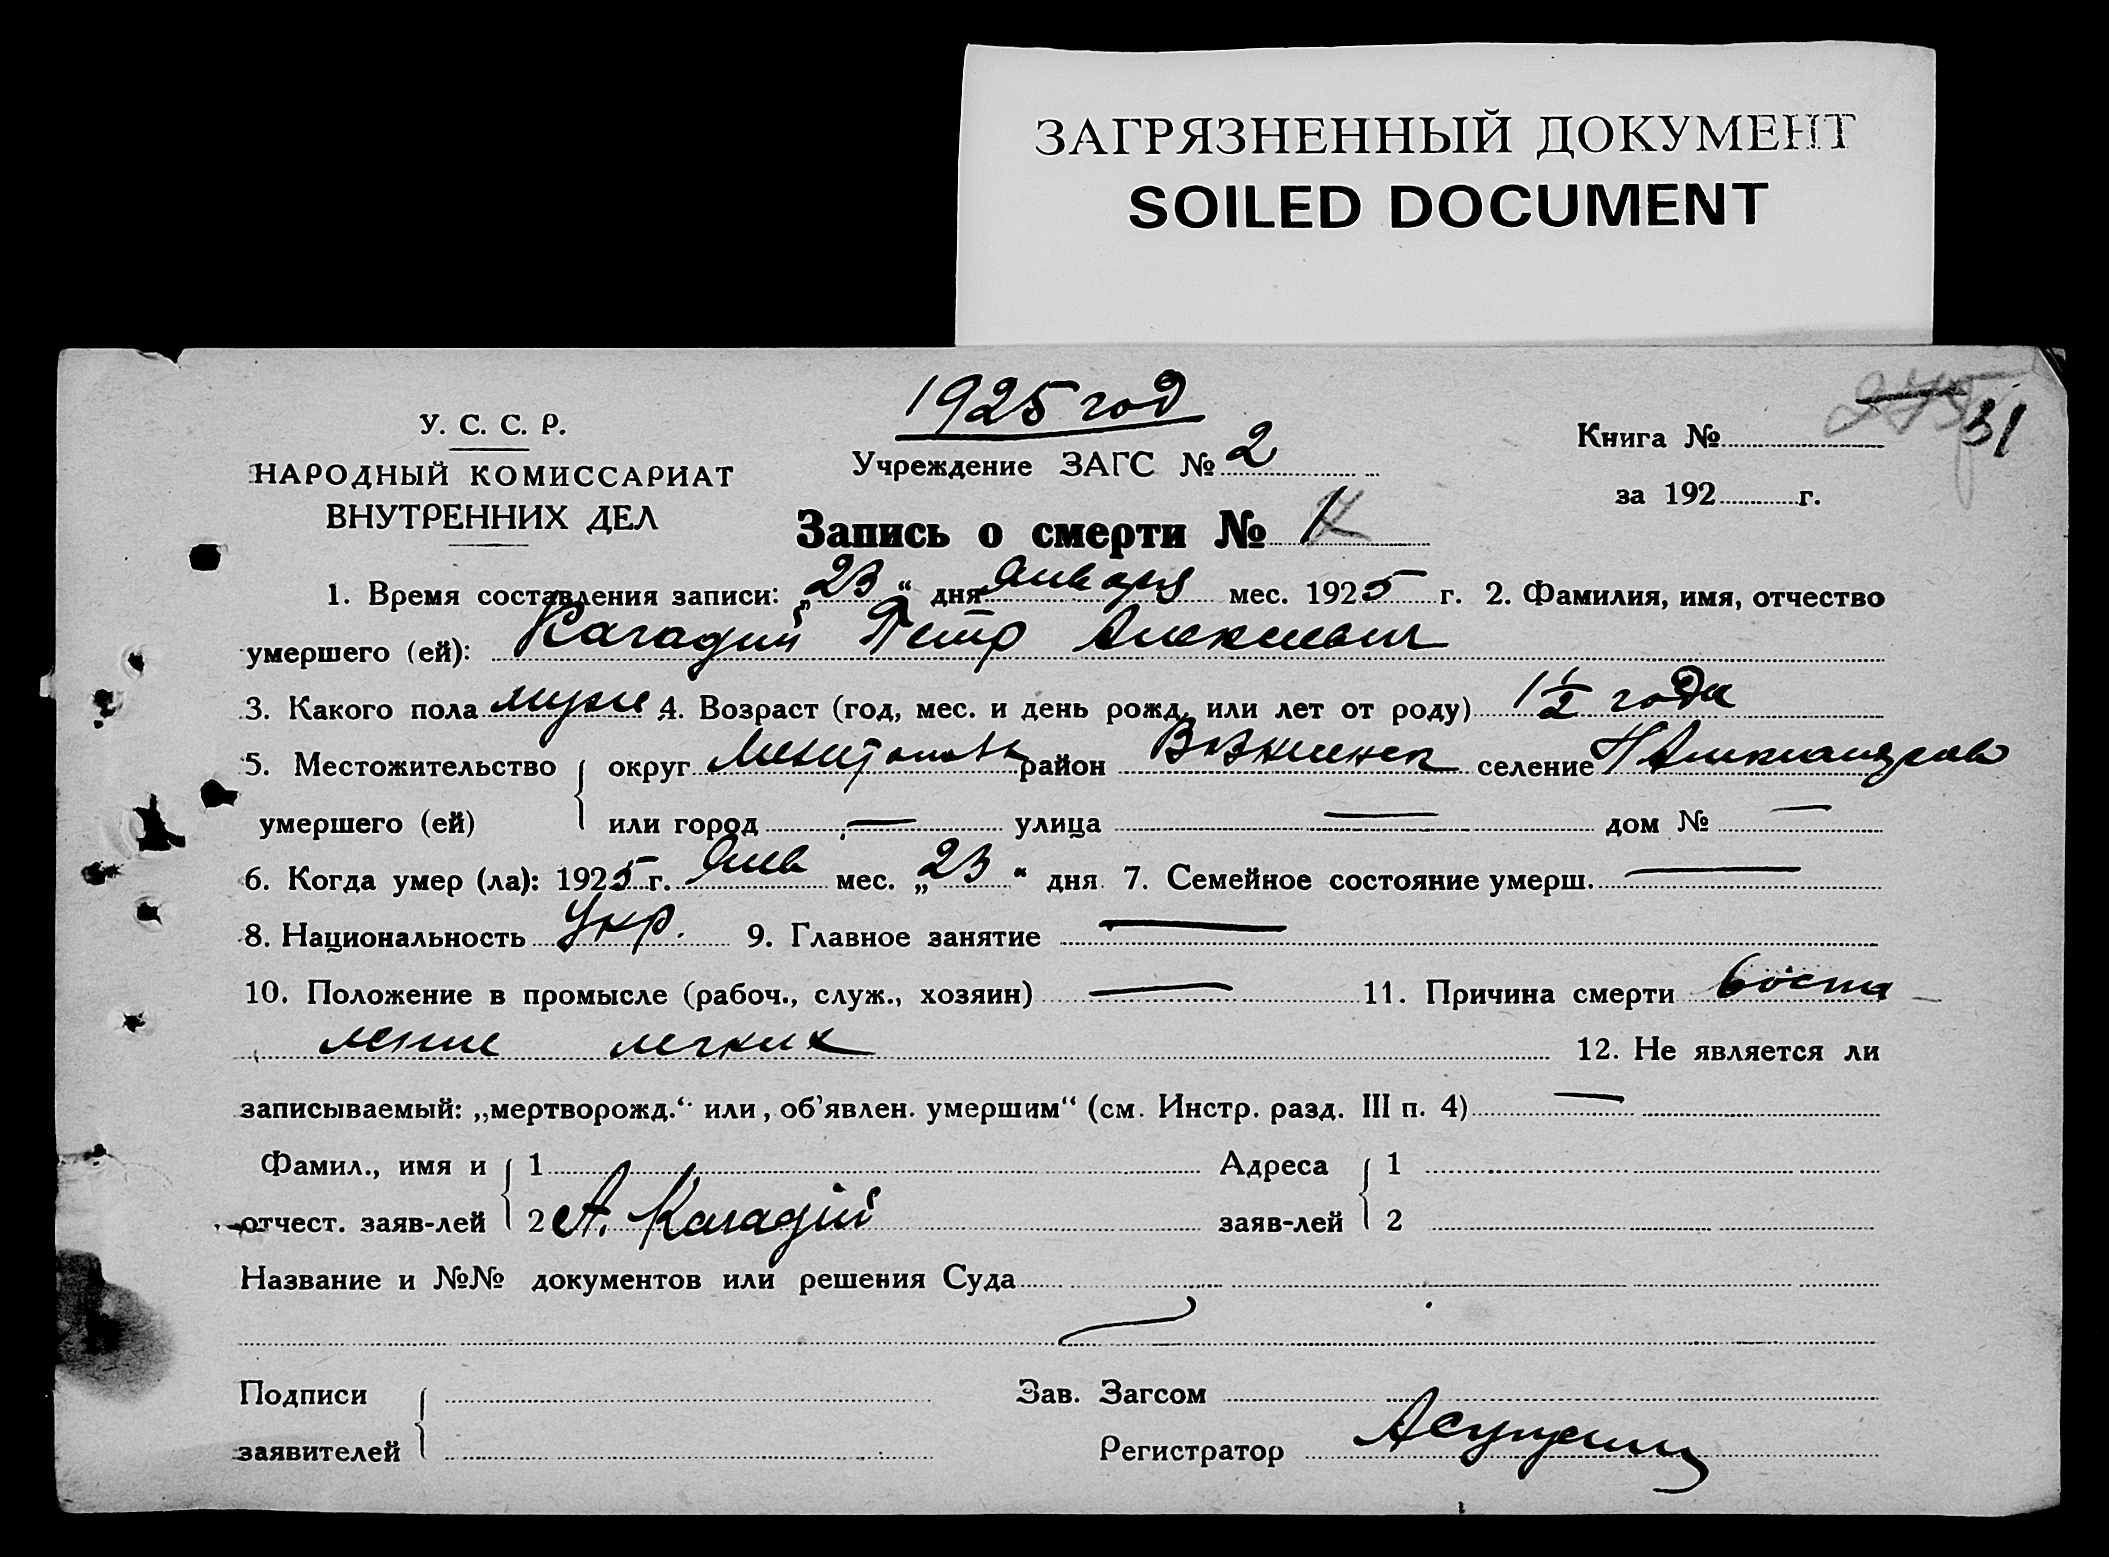 ЗАГРЯЗНЕННЫЙ ДОКУМЕНТ
SOILED DOCUMENT
31
1925 год
У. С. С. Р.
НАРОДНЫЙ КОМИССАРИАТ
ВНУТРЕННИХ ДЕЛ
Учреждение ЗАГС № 2
Книга №
за 192 г.
Запись о смерти № 1
1. Время составления записи: „23“ дня января мес. 1925 г. 2. Фамилия, имя, отчество
умершего (ей): Карагадий Петр Алексеевич
3. Какого пола муж 4. Возраст (год, мес. и день рожд. или лет от роду) 1½ года
5. Местожительство округ район селение
умершего (ей) или город — улица — дом № —
6. Когда умер (ла): 1925 г. янв мес. „23“ дня 7. Семейное состояние умерш. —
8. Национальность Укр. 9. Главное занятие —
10. Положение в промысле (рабоч., служ., хозяин) — 11. Причина смерти воспа-
ление легких 12. Не является ли
записываемый: „мертворожд.“ или „об’явлен. умершим“ (см. Инстр. разд. III п. 4) —
Фамил., имя и 1 Адреса 1
отчест. заяв-лей 2 А. Карагадій заяв-лей 2
Название и №№ документов или решения Суда
Подписи Зав. Загсом
заявителей Регистратор